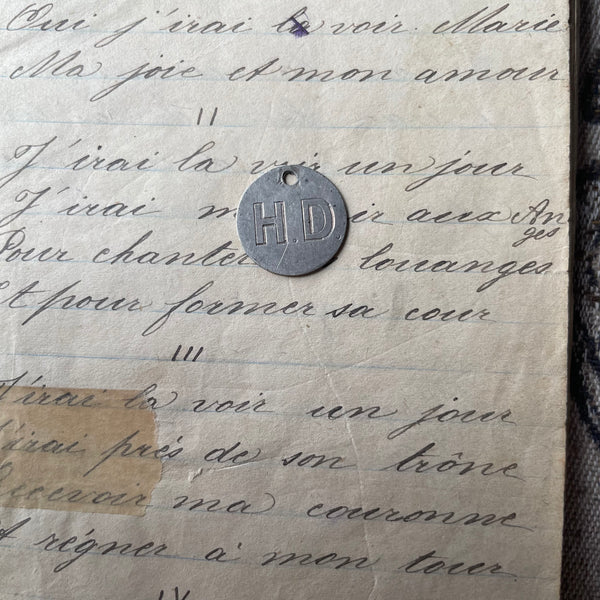 Oui j'irai la voir Marie
Ma joie et mon amour
II
J'irai la voir un jour
J'irai m ir aux Anges
Pour chanter louanges
Et pour former sa cour
III
J'irai la voir un jour
J'irai prés de son trône
Recevoir ma couronne
Et régner à mon tour.
IV
H.D.